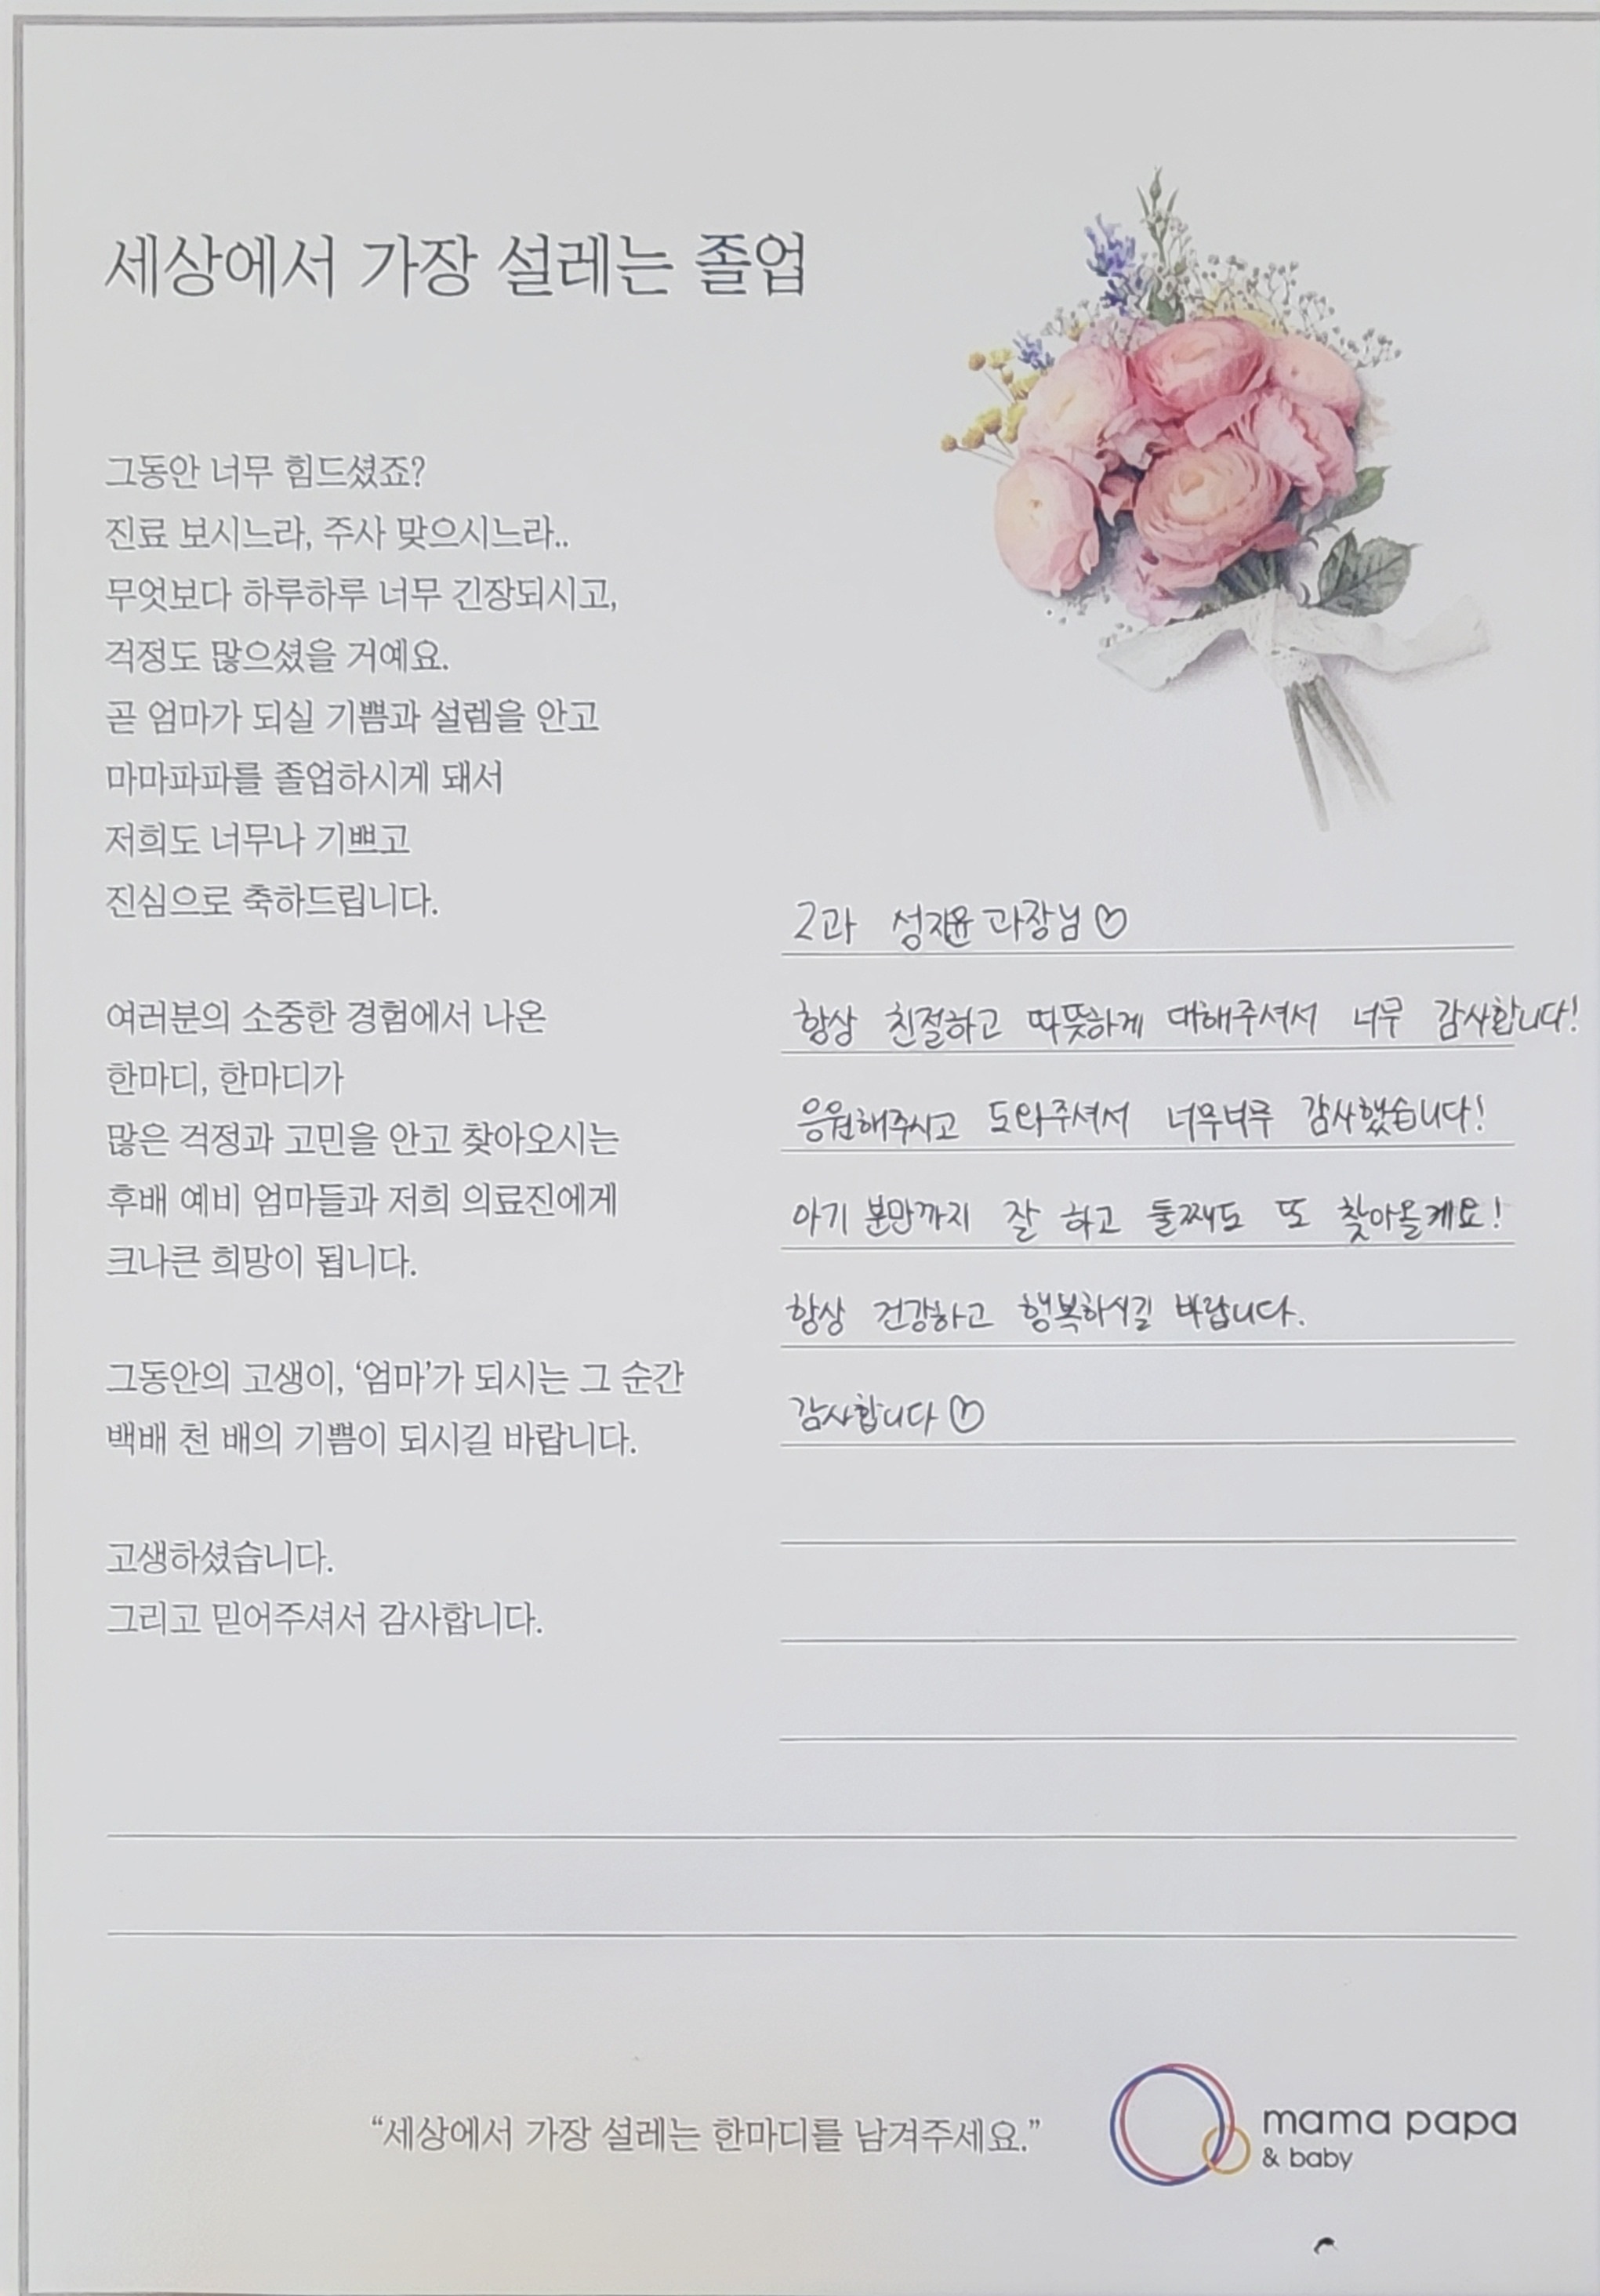 세상에서 가장 설레는 졸업
그동안 너무 힘드셨죠?
진료 보시느라, 주사 맞으시느라..
무엇보다 하루하루 너무 긴장되시고,
걱정도 많으셨을 거예요.
곧 엄마가 되실 기쁨과 설렘을 안고
마마파파를 졸업하시게 돼서
저희도 너무나 기쁘고
진심으로 축하드립니다.
여러분의 소중한 경험에서 나온
한마디, 한마디가
많은 걱정과 고민을 안고 찾아오시는
후배 예비 엄마들과 저희 의료진에게
크나큰 희망이 됩니다.
그동안의 고생이, ‘엄마’가 되시는 그 순간
백배 천 배의 기쁨이 되시길 바랍니다.
고생하셨습니다.
그리고 믿어주셔서 감사합니다.
2과 과장님♡
항상 친절하고 따뜻하게 대해주셔서 너무 감사합니다!
응원해주시고 도와주셔서 너무너무 감사했습니다!
아기 분만까지 잘 하고 둘째도 또 찾아올게요!
항상 건강하고 행복하시길 바랍니다.
감사합니다♡
“세상에서 가장 설레는 한마디를 남겨주세요.”
mama papa
& baby